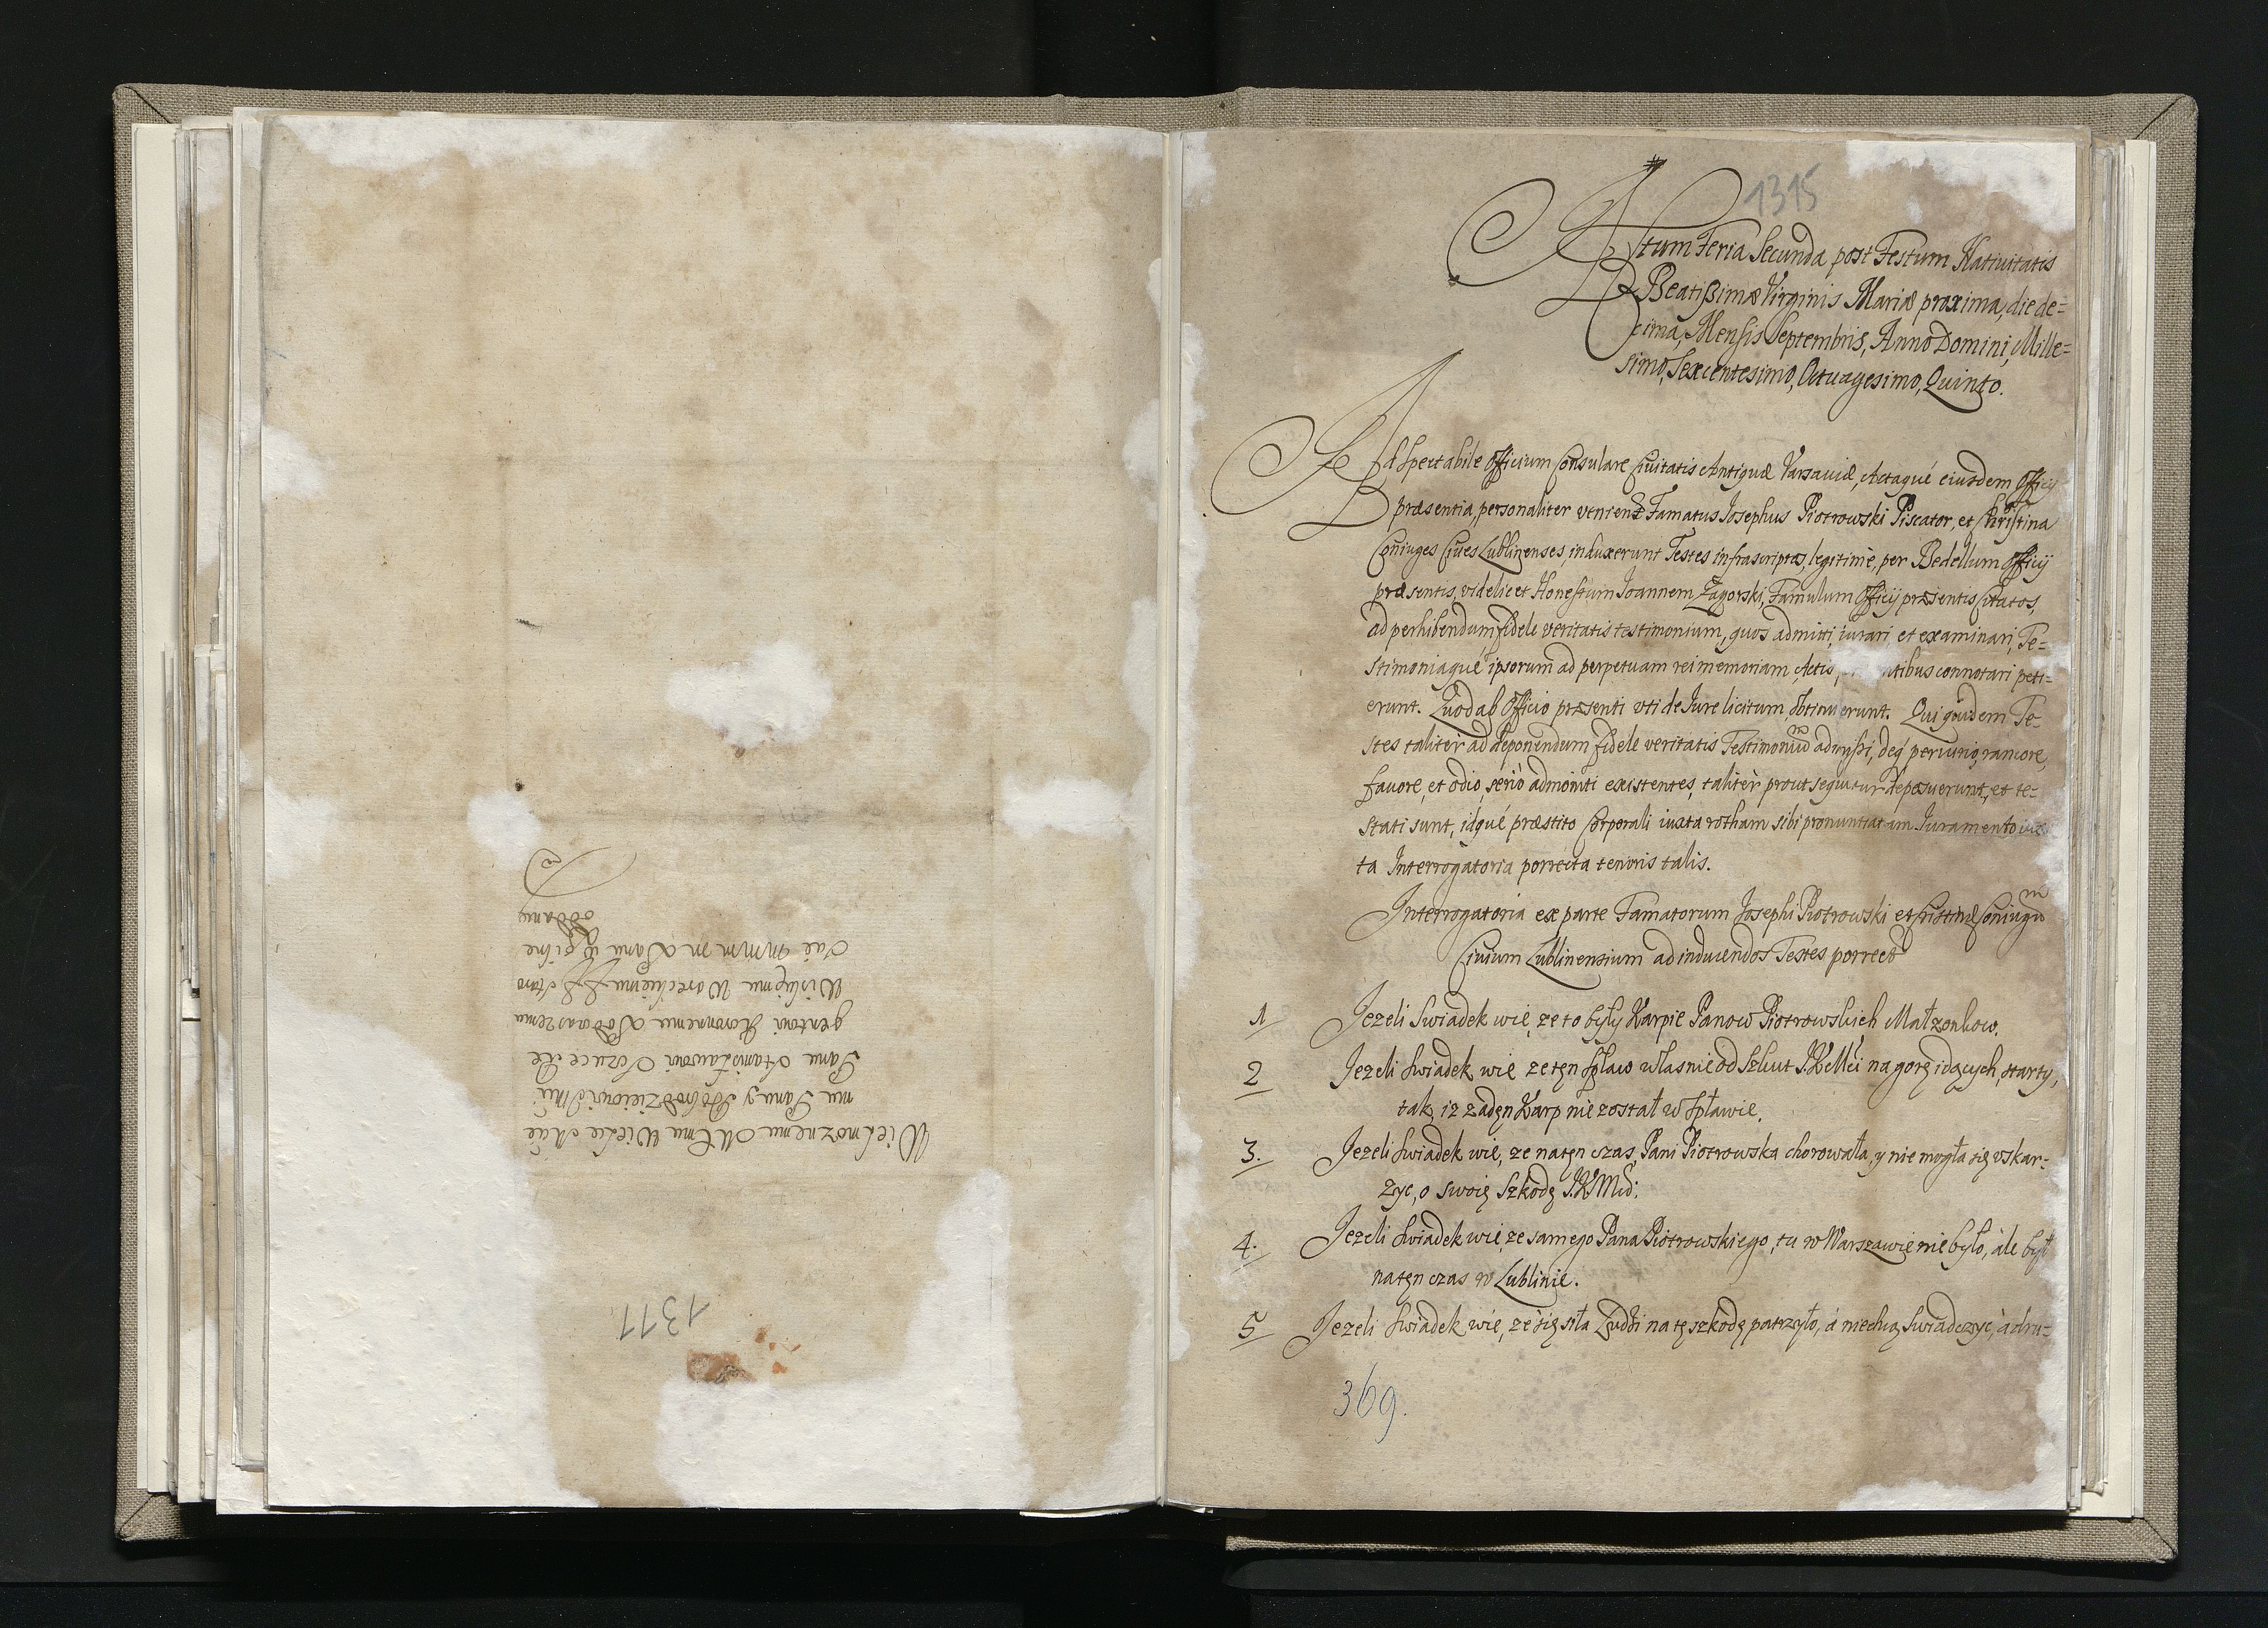 Wielmoznemu Mśemu Wielce Mśćie
mu Panu y Dobrodzieiowi Jmći
Panu Stanisławowi Szczuce Re
gentowi Koronnemu Podczaszemu
Wiskiemu Wareckiemu Staro
scie MMM Panu pilne
oddany
1311
1315
Actum Feria Secunda post Festum Natiuitatis
Beatißimæ Virginis Mariæ proxima, die de=
cima, Mensis Septembris, Anno Domini, Mille=
simo, Sexcentesimo, Octuagesimo, Quinto.
Ad Spectabile Officium Consulare Ciuitatis Antiquæ Varsauiæ, Actaqué eiusdem Officij
præsentia, personaliter venientes Famatus Josephus Piotrowski Piscator, et Christina
Coniuges Ciues Lublinenses, induxerunt Testes infrascriptos, legitimè, per Bedellum Officij
præsentis, videlicet Honestum Joannem Zagorski, Famulum Officij præsentis Citatos,
ad perhibendum fidele veritatis testimonium, quos admitti, iurari, et examinari, Te=
stimoniaqué ipsorum ad perpetuam rei memoriam Actis, tibus connotari peti=
erunt. Quod ab Officio præsenti vti de Iure licitum, obtinuerunt. Qui quidem Te=
stes taliter ad deponendum fidele veritatis Testimonium admißi, deq́ periurio, rancore,
fauore, et odio, serió admoniti existentes, taliter prout sequitur deposuerunt, et te=
stati sunt, idqué præstito Corporali iuxta rotham sibi pronuntiatam Iuramento iux
ta Interrogatoria porrecta tenoris talis.
Interrogatoria ex parte Famatorum Josephi Piotrowski et Cristinæ Coniugum
Ciuium Lublinensium ad inducendos Testes porrecta
1 Jezeli Swiadek wie, ze to były Karpie Panow Piotrowskich Małzonkow.
2 Jezeli Swiadek wie ze tęn Spław własnie od Szkut J.K.Mći na gorę idących, starty,
tak, iz zadęn Karp nie został w Spławie.
3. Jezeli Swiadek wie, ze natęn czas, Pani Piotrowska chorowała, y nie mogła się vskar=
zyc, o swoię Szkodę J.K.Mći.
4. Jezeli Swiadek wie, ze samego Pana Piotrowskiego, tu w Warszawie nie było, ále był
natęn czas w Lublinie.
5 Jezeli Swiadek wie, ze się siła Ludźi na tę szkodę patrzyło, á niechcą Swiadczyc, á dru=
369.